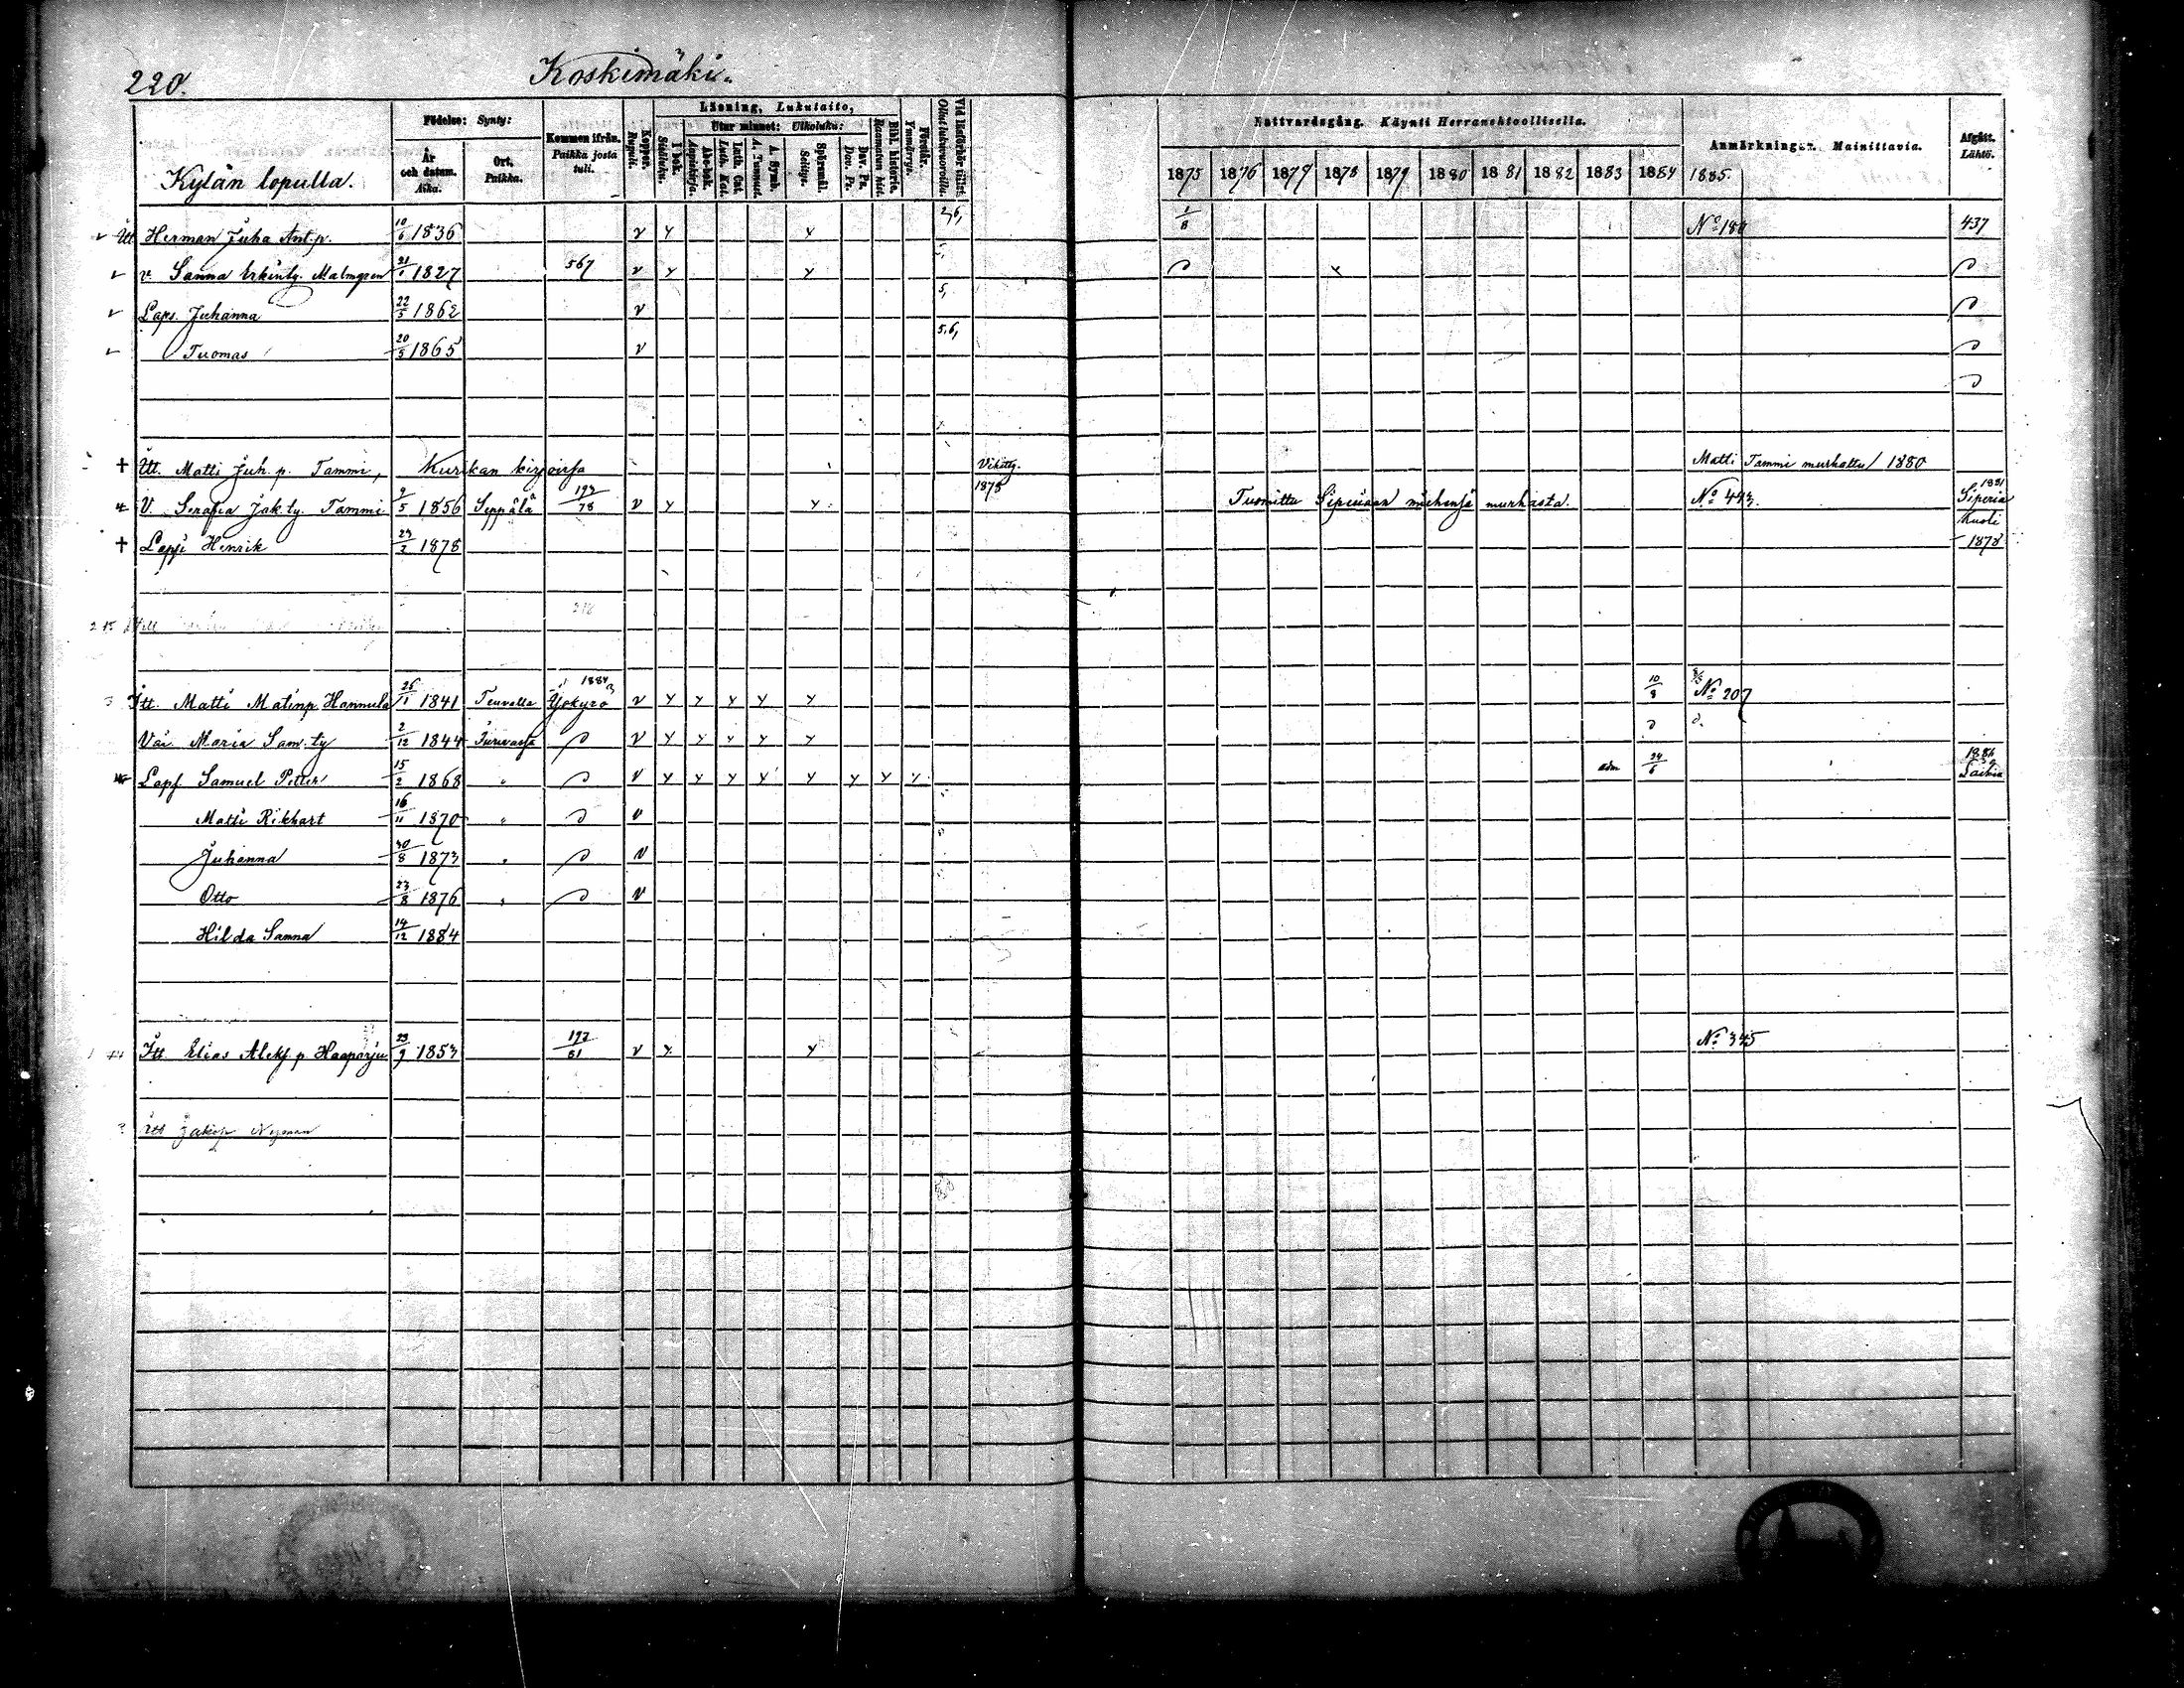 220.
Koskimäki.
Födelse: Synty:
Kommen ifrån. Paikka josta tuli.
Koppor. Rupuli.
Läsning, Lukutaito,
I bok. Sisäluku.
Utur minnet: Ulkoluku:
Abc-bok. Aapiskirja.
Luth. Cat. Luth. Kat.
A. Symb. A. Tunnust.
Spörsmål. Selitys.
Dav. Ps. Dav. Ps.
Bibl. historia. Raamatun hist.
Förstår. Ymmärrys.
Vid läsförhör tillst. Ollut lukuvuoroilla.
Nattvardsgång. Käynti Herranehtoollisella.
Anmärkningar. Mainittavia.
Afgått. Lähtö.
År och datum. Aika.
Ort. Paikka.
Kylän lopulla.
1875 1876 1877 1878 1879 1880 1881 1882 1883 1884 1885.
Itt Herman Juha Ant.p. 10/6 1836 v y y 1/8 No 180 437
v. Sanna Erkinty. Malmgren 21/1 1827 567 v y y
Laps. Juhanna 22/5 1862 v 5,
Tuomas 20/5 1865 v 5,6,
Itt. Matti Juh. p. Tammi, Kurikan kirjoissa Vihitty. 1878 Matti Tammi murhattu 1880
V. Serafia Jak. ty. Tammi 9/5 1856 Seppälä 193/78 v y y Tuomittu Siperiaan miehensä murhasta. No 443. 1881 Siperia
Lapsi Henrik 23/2 1878 Kuoli 1878
218
215
Itt. Matti Matinp. Hannula 26/1 1841 Teuvalla 1884 Ylökyrö v y y y y y 10/8 No 207
Vai. Maria Sam. ty 2/12 1844 v y y y y y
Laps Samuel Petter 15/2 1868 " v y y y y y y y y adm 24/6 1886 Laihia
Matti Rikhart 16/11 1870 " v
Juhanna 30/8 1873 " v
Otto 23/8 1876 " v
Hilda Sanna 14/12 1884
Itt Elias Aleks. p Haaparju 23/9 1853 197/81 v y y No 345
Itt Jakop Nyman